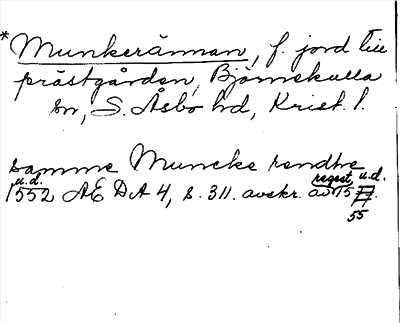 *Munkerännan, f. jord till
prästgården, Björnekulla
sn, S. Åsbo hd, Krist. l.
samme Muncke rendhe
u.d. regest u.d.
1552 AE DA 4, s. 311. avskr. av 15
55